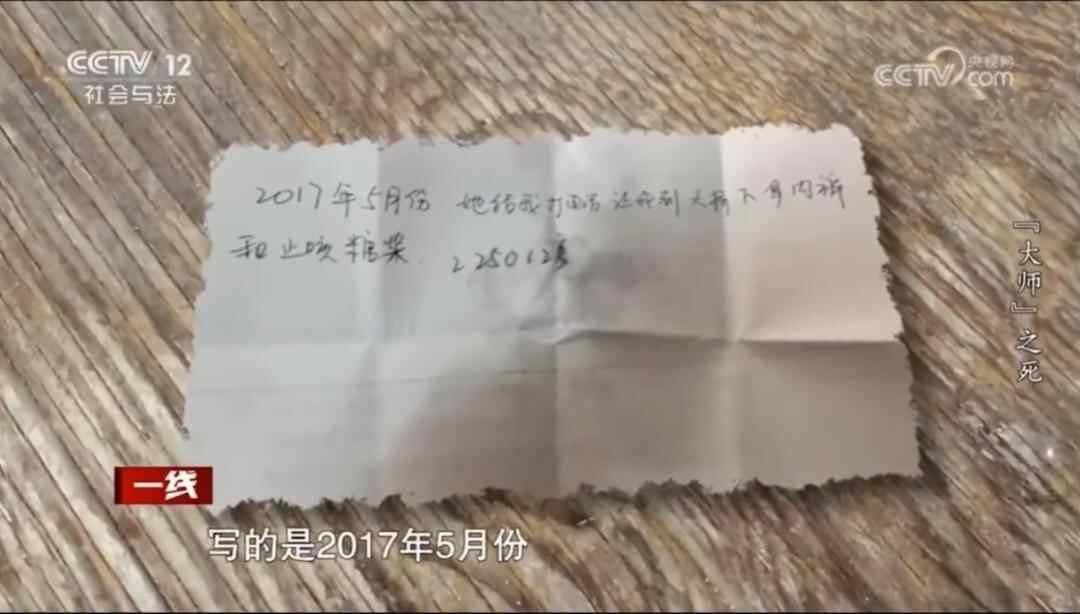 CCTV 12
社会与法
央视网
CCTV com
2017年5月份 她给我打电话 让我到大桥下拿内裤
和止咳糖浆. 225012
『大师』之死
一线
写的是2017年5月份